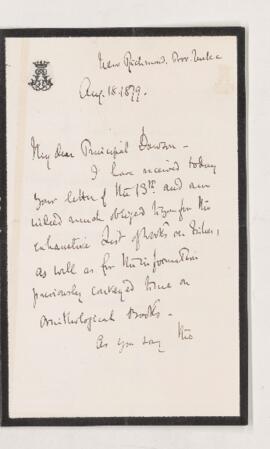 New Richmond. Prov. Quebec
Aug. 18. 1879.
My dear Principal Dawson -
I have received today
your letter of the 13th and am
indeed much obliged to you for the
exhaustive List of Books on Fishes,
as well as for the information
previously conveyed to me on
Ornithological Books -
As you say the